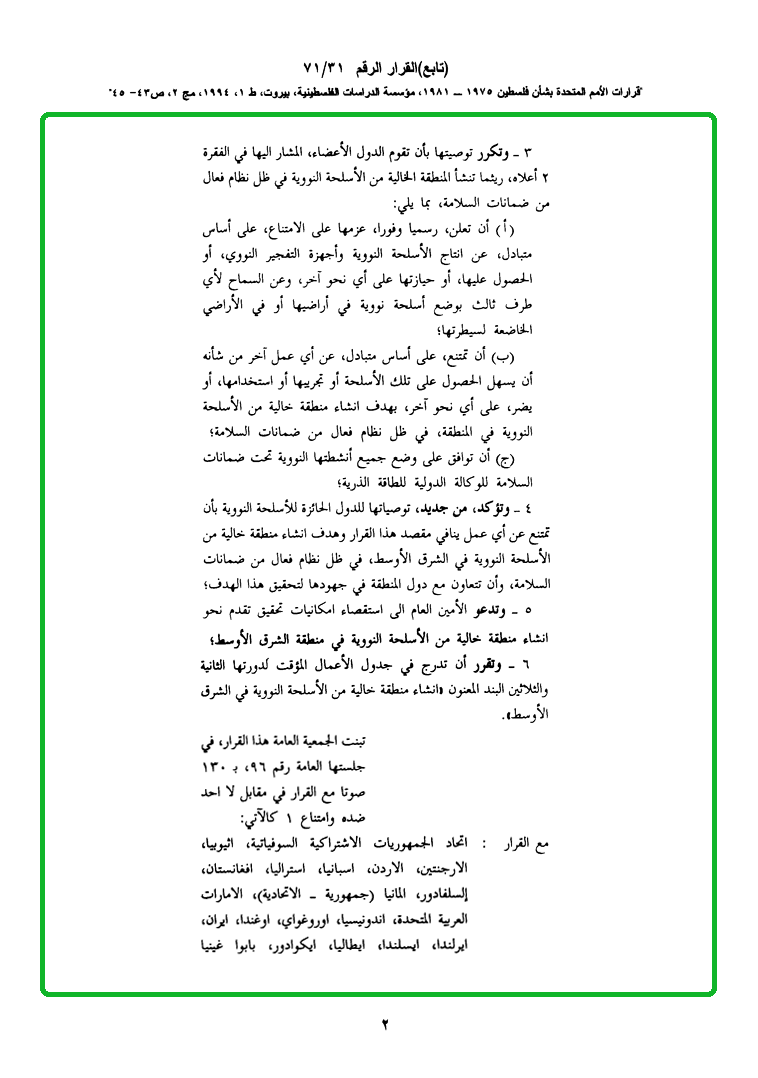 (تابع)القرار الرقم ٧١/٣١
"قرارات الأمم المتحدة بشأن فلسطين ١٩٧٥ – ١٩٨١، مؤسسة الدراسات الفلسطينية، بيروت، ط ١، ١٩٩٤، مج ٢، ص٤٣- ٤٥"
٣ ـ وتكرر توصيتها بأن تقوم الدول الأعضاء، المشار اليها في الفقرة
٢ أعلاه، ريثما تنشأ المنطقة الخالية من الأسلحة النووية في ظل نظام فعال
من ضمانات السلامة، بما يلي:
(أ) أن تعلن، رسميا وفورا، عزمها على الامتناع، على أساس
متبادل، عن انتاج الأسلحة النووية وأجهزة التفجير النووي، أو
الحصول عليها، أو حيازتها على أي نحو آخر، وعن السماح لأي
طرف ثالث بوضع أسلحة نووية في أراضيها أو في الأراضي
الخاضعة لسيطرتها؛
(ب) أن تمتنع، على أساس متبادل، عن أي عمل آخر من شأنه
أن يسهل الحصول على تلك الأسلحة أو تجريبها أو استخدامها، أو
يضر، على أي نحو آخر، بهدف انشاء منطقة خالية من الأسلحة
النووية في المنطقة، في ظل نظام فعال من ضمانات السلامة؛
(ج) أن توافق على وضع جميع أنشطتها النووية تحت ضمانات
السلامة للوكالة الدولية للطاقة الذرية؛
٤ ـ وتؤكد، من جديد، توصياتها للدول الحائزة للأسلحة النووية بأن
تمتنع عن أي عمل ينافي مقصد هذا القرار وهدف انشاء منطقة خالية من
الأسلحة النووية في الشرق الأوسط، في ظل نظام فعال من ضمانات
السلامة، وأن تتعاون مع دول المنطقة في جهودها لتحقيق هذا الهدف؛
٥ ـ وتدعو الأمين العام الى استقصاء امكانيات تحقيق تقدم نحو
انشاء منطقة خالية من الأسلحة النووية في منطقة الشرق الأوسط؛
٦ ـ وتقرر أن تدرج في جدول الأعمال المؤقت لدورتها الثانية
والثلاثين البند المعنون «انشاء منطقة خالية من الأسلحة النووية في الشرق
الأوسط».
تبنت الجمعية العامة هذا القرار، في
جلستها العامة رقم ٩٦، بـ ١٣٠
صوتا مع القرار في مقابل لا احد
ضده وامتناع ١ كالآتي:
مع القرار : اتحاد الجمهوريات الاشتراكية السوفياتية، اثيوبيا،
الارجنتين، الاردن، اسبانيا، استراليا، افغانستان،
إلسلفادور، المانيا (جمهورية ـ الاتحادية)، الامارات
العربية المتحدة، اندونيسيا، اوروغواي، اوغندا، ايران،
ايرلندا، ايسلندا، ايطاليا، ايكوادور، بابوا غينيا
٢